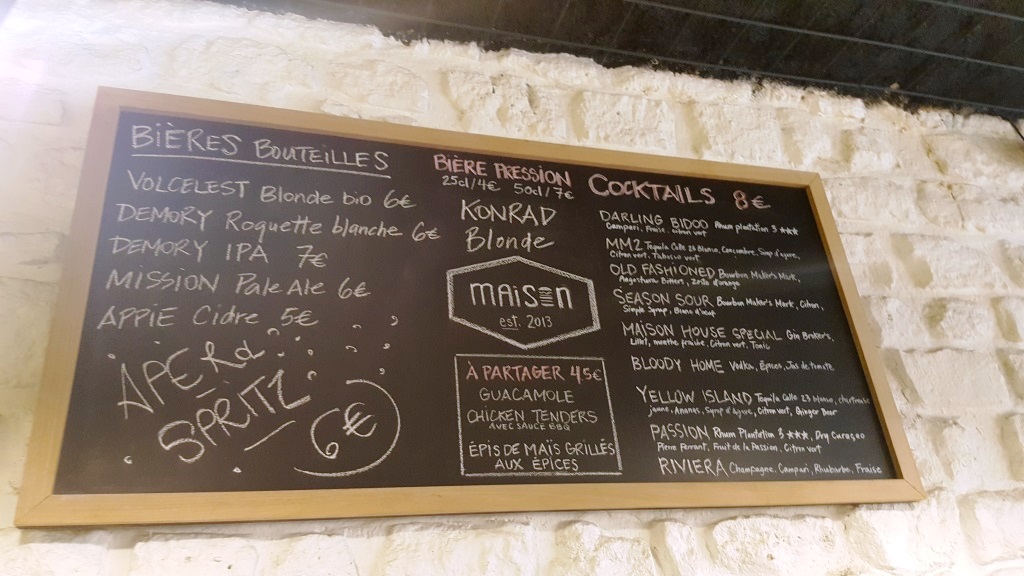 BIÈRES BOUTEILLES
VOLCELEST Blonde bio 6€
DEMORY Roquette blanche 6€
DEMORY IPA 7€
MISSION Pale Ale 6€
APPIE Cidre 5€
APERO
SPRITZ
6€
BIÈRE PRESSION
25cl/4€ 50cl/7€
KONRAD
Blonde
MAISON
est. 2013
À PARTAGER 4,5€
GUACAMOLE
CHICKEN TENDERS
AVEC SAUCE BBQ
ÉPIS DE MAÏS GRILLÉS
AUX ÉPICES
COCKTAILS 8€
DARLING BIDOO Rhum plantation 3 ★★★
Campari, Fraise, citron vert
MM2 Tequila Calle 23 Blanco, Concombre, Sirop d'agave,
Citron vert, Tabasco vert
OLD FASHIONED Bourbon Maker's Mark,
Angostura Bitters, zeste d'orange
SEASON SOUR Bourbon Maker's Mark, Citron,
Simple Syrup, Blanc d'œuf
MAISON HOUSE SPECIAL Gin Brokers,
Lillet, menthe fraîche, Citron vert, Tonic
BLOODY HOME Vodka, Épices, Jus de tomate
YELLOW ISLAND Tequila Calle 23 blanco, chartreuse
jaune, Ananas, Sirop d'agave, Citron vert, Ginger Beer
PASSION Rhum Plantation 3 ★★★, Dry Curaçao
Pierre Ferrant, Fruit de la Passion, Citron vert
RIVIERA Champagne, Campari, Rhubarbe, Fraise